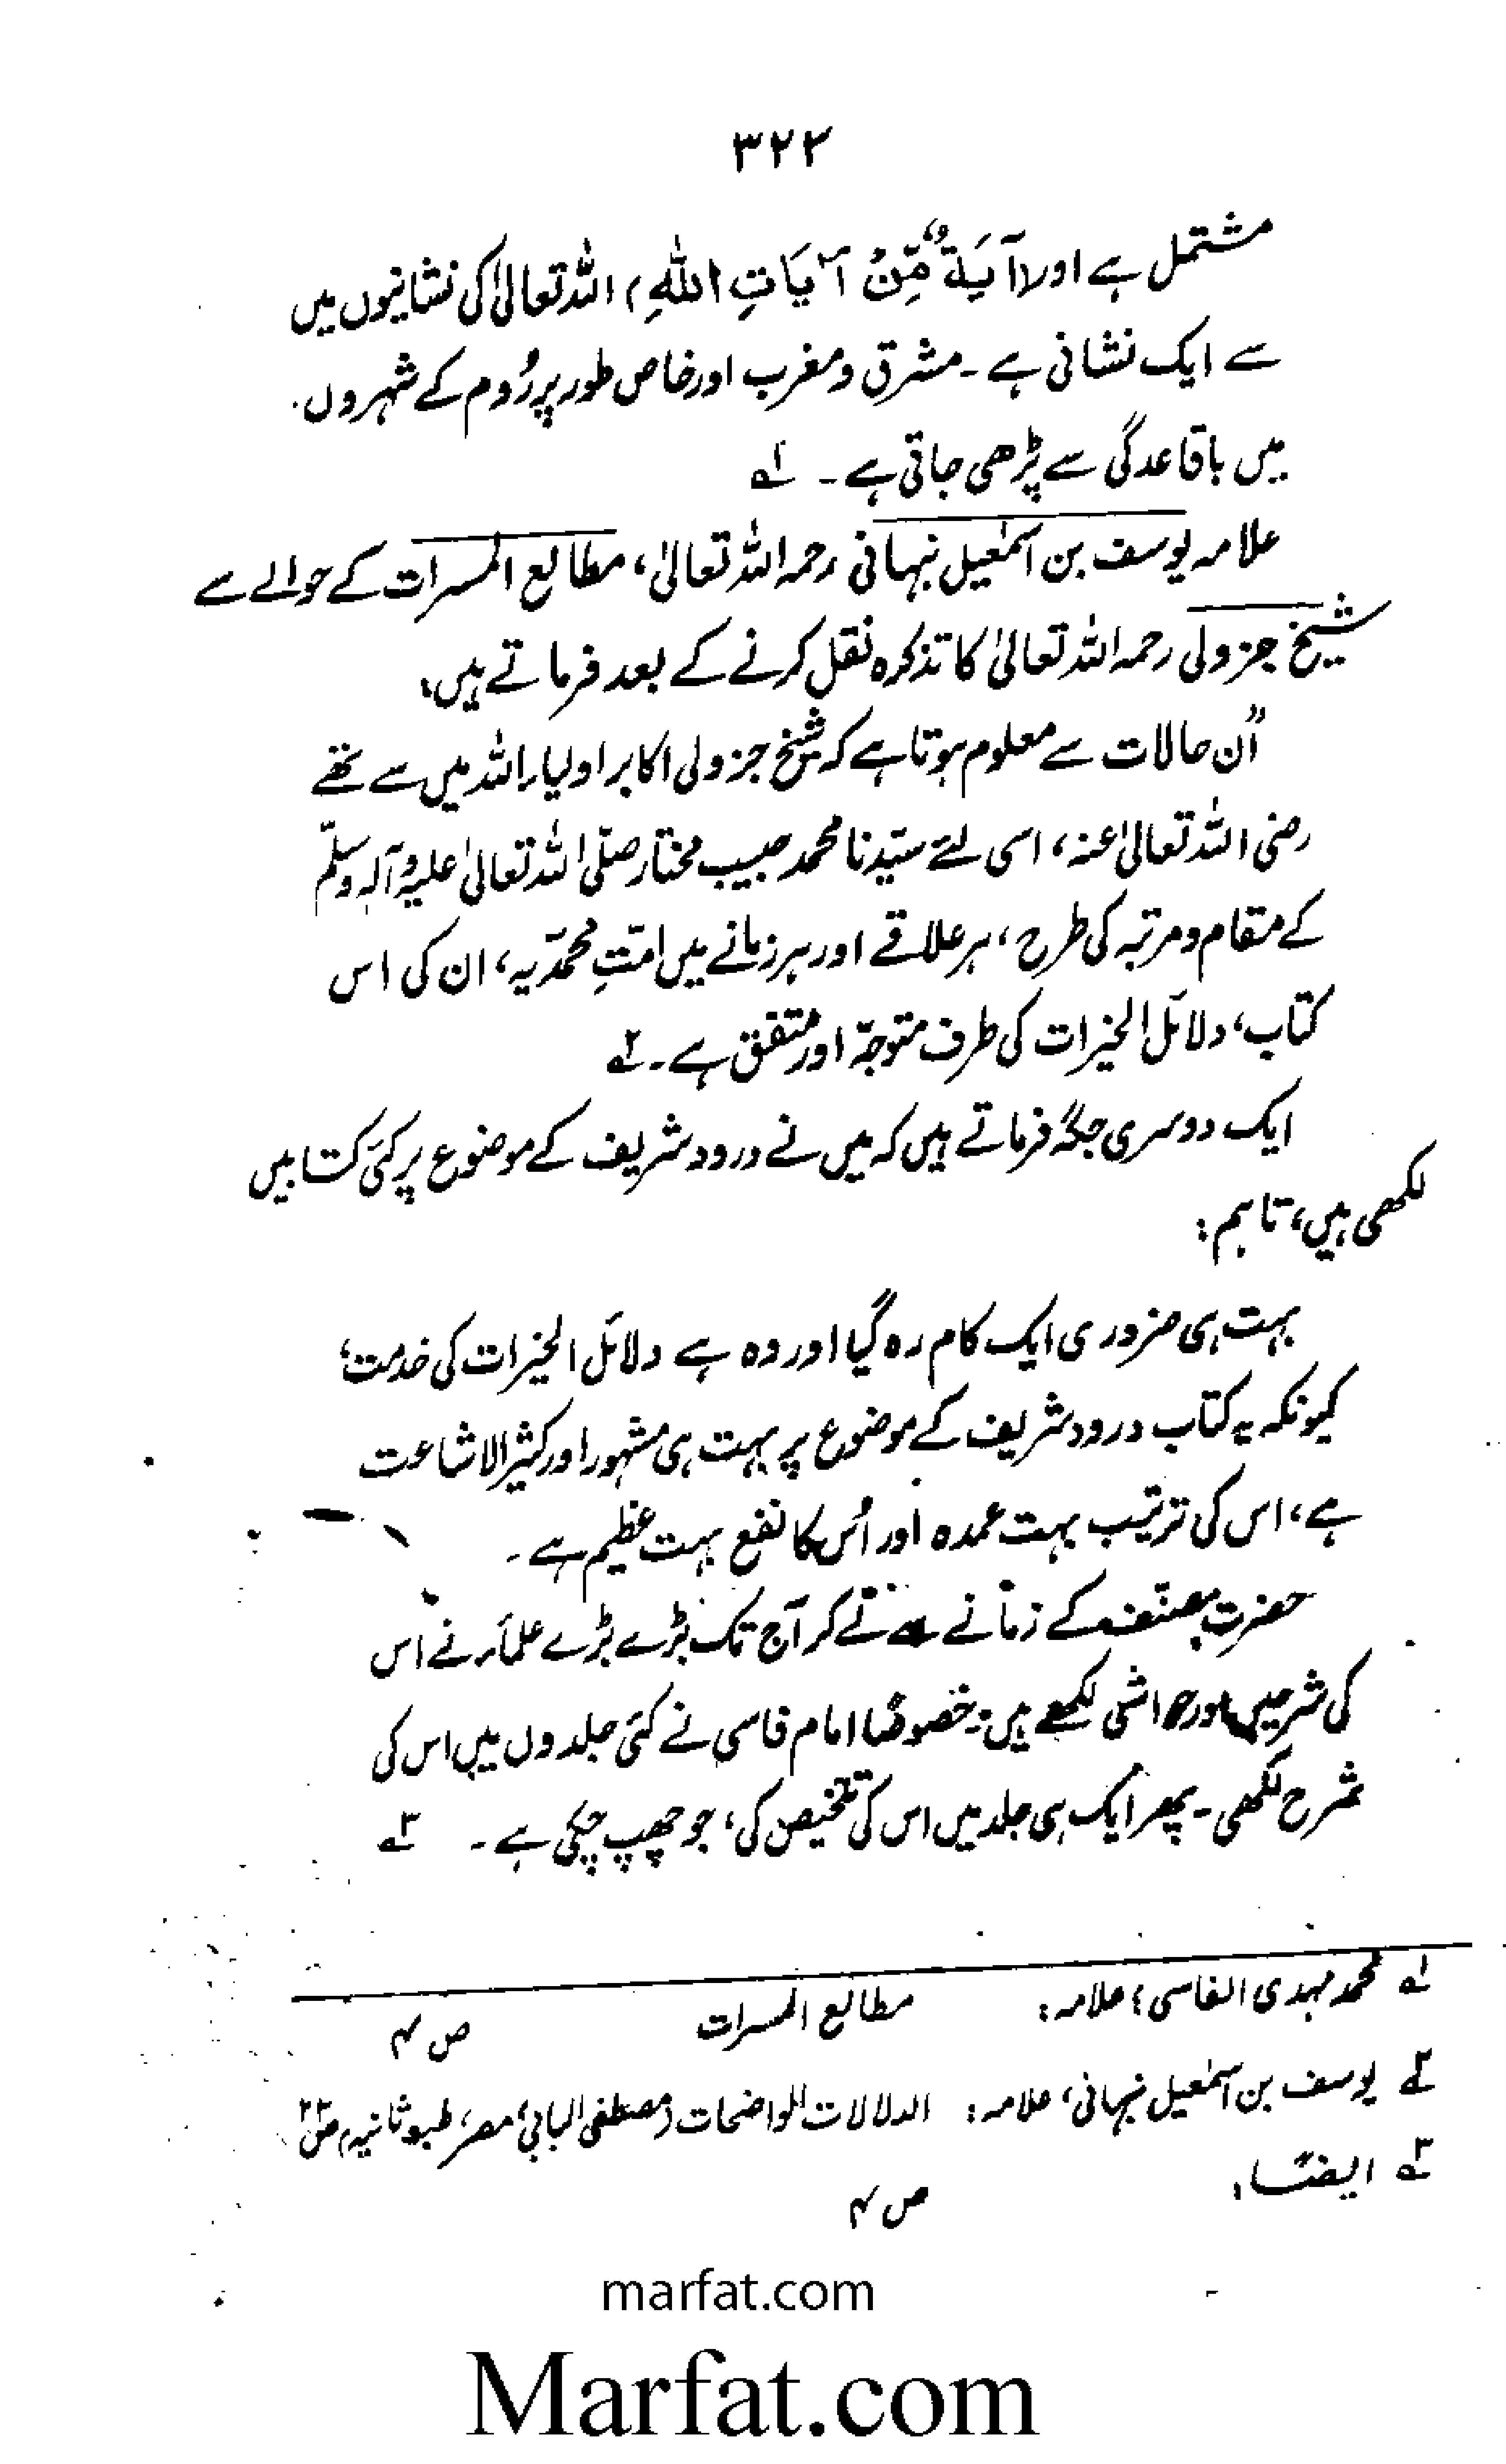 ۳۲۲
مشتمل ہے اور (آيَةٌ مِّنْ آيَاتِ اللهِ) اللہ تعالیٰ کی نشانیوں میں
سے ایک نشانی ہے۔ مشرق و مغرب اور خاص طور پر رُوم کے شہروں
میں باقاعدگی سے پڑھی جاتی ہے۔ ۱ے
علامہ یوسف بن اسمٰعیل نبہانی رحمہ اللہ تعالیٰ، مطالع المسرات کے حوالے سے
شیخ جزولی رحمہ اللہ تعالیٰ کا تذکرہ نقل کرنے کے بعد فرماتے ہیں،
"اُن حالات سے معلوم ہوتا ہے کہ شیخ جزولی اکابر اولیاء اللہ میں سے تھے
رضی اللہ تعالیٰ عنہ، اسی لئے سیّدنا محمد حبیب مختار صلّی اللہ تعالیٰ علیہ وآلہٖ وسلّم
کے مقام و مرتبہ کی طرح، ہر علاقے اور ہر زمانے میں امّتِ محمدّیہ، ان کی اس
کتاب، دلائل الخیرات کی طرف متوجّہ اور متفق ہے۔ ۲ے
ایک دوسری جگہ فرماتے ہیں کہ میں نے درود شریف کے موضوع پر کئی کتابیں
لکھی ہیں، تاہم:
بہت ہی ضروری ایک کام رہ گیا اور وہ ہے دلائل الخیرات کی خدمت،
کیونکہ یہ کتاب درود شریف کے موضوع پر بہت ہی مشہور اور کثیر الاشاعت
ہے، اس کی ترتیب بہت عمدہ اور اُس کا نفع بہت عظیم ہے۔
حضرت مصنف کے زمانے سے لے کر آج تک بڑے بڑے علماء نے اس
کی شرحیں اور حواشی لکھے ہیں۔ خصوصًا امام فاسی نے کئی جلدوں میں اس کی
شرح لکھی۔ پھر ایک ہی جلد میں اس کی تلخیص کی، جو چھپ چکی ہے۔ ۳ے
۱ے محمد مہدی الفاسی، علامہ: مطالع المسرات ص ۴
۲ے یوسف بن اسمٰعیل نبہانی، علامہ: الدلالات الواضحات (مصطفی البابی، مصر، طبع ثانیہ) ص ۲۲
۳ے ایضًا، ص ۴
marfat.com
Marfat.com